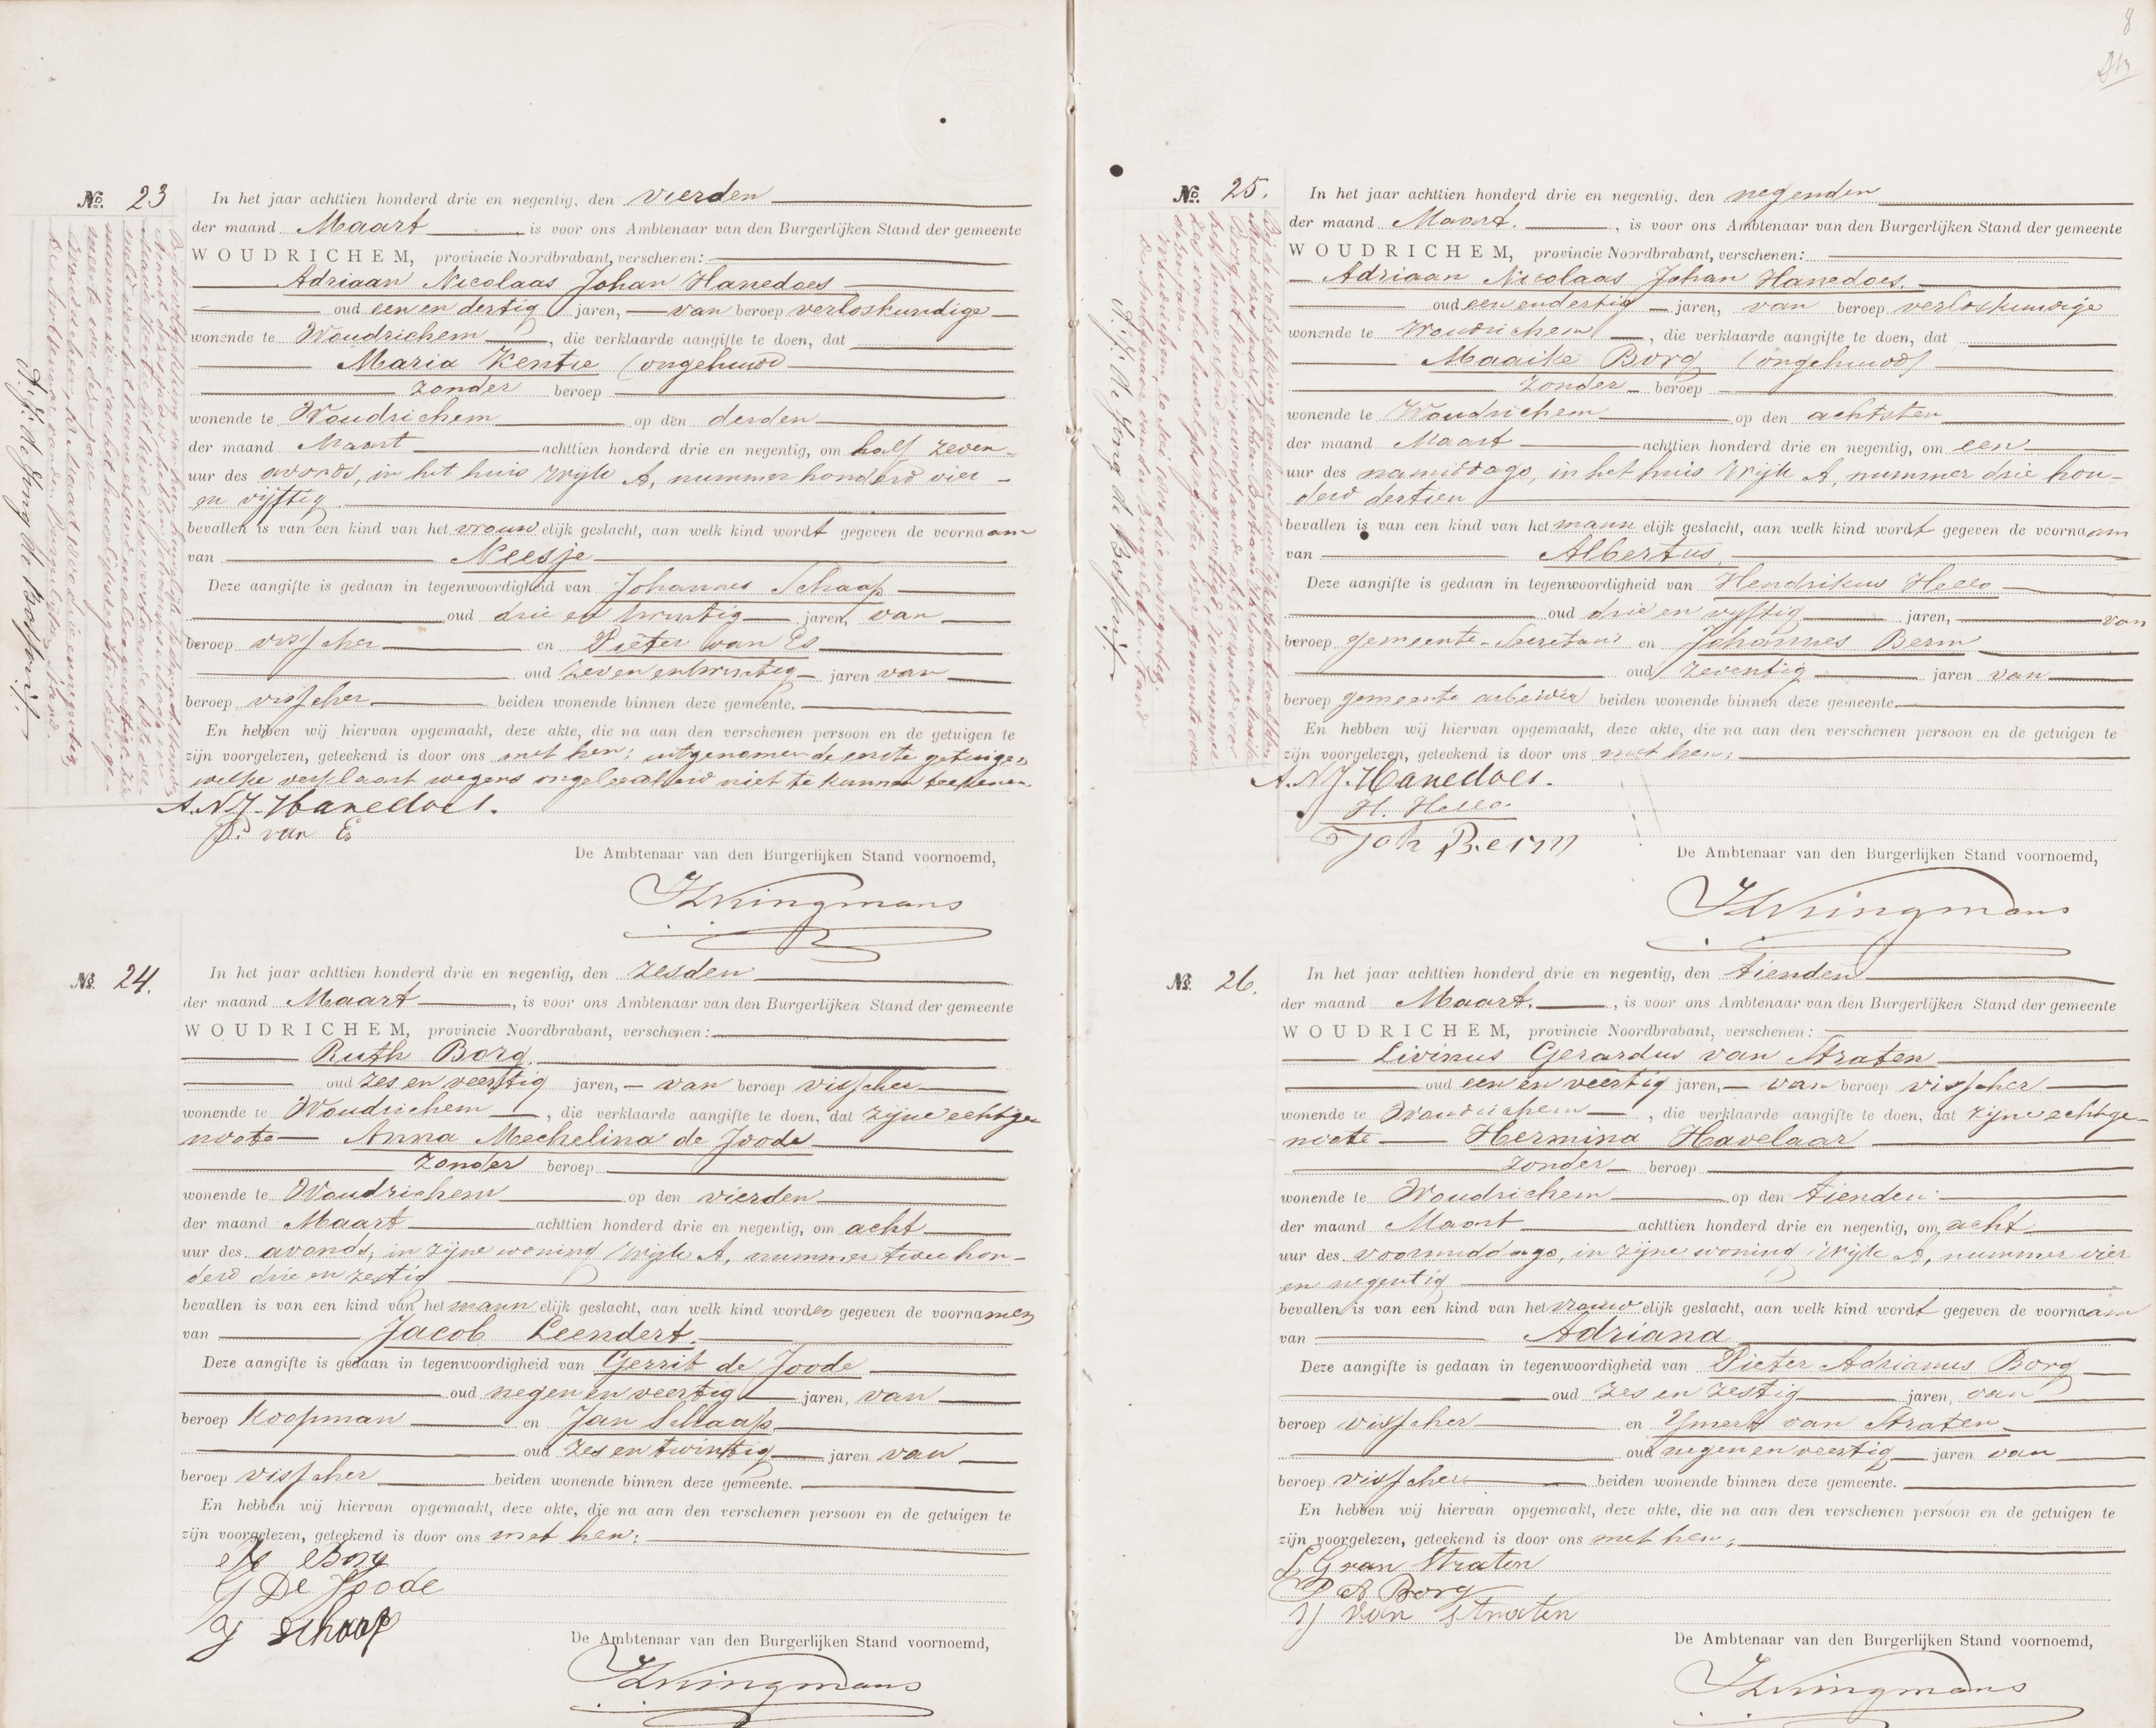 No. 23
In het jaar achttien honderd drie en negentig, den vierden
der maand Maart, is voor ons Ambtenaar van den Burgerlijken Stand der gemeente
WOUDRICHEM, provincie Noordbrabant, verschenen:
Adriaan Nicolaas Johan Hanedoes
oud een en dertig jaren, van beroep verloskundige
wonende te Woudrichem, die verklaarde aangifte te doen, dat
Maria Kentie (ongehuwd
zonder beroep
wonende te Woudrichem op den derden
der maand Maart achttien honderd drie en negentig, om half zeven
uur des avonds, in het huis Wijk A, nummer honderd vier
en vijftig
bevallen is van een kind van het vrouwelijk geslacht, aan welk kind wordt gegeven de voornaam
van Neesje
Deze aangifte is gedaan in tegenwoordigheid van Johannes Schaap
oud drie en twintig jaren, van
beroep visscher en Pieter van Es
oud zeven en twintig jaren van
beroep visscher beiden wonende binnen deze gemeente.
En hebben wij hiervan opgemaakt, deze akte, die na aan den verschenen persoon en de getuigen te
zijn voorgelezen, geteekend is door ons met hen; uitgenomen de eerste getuige,
welke verklaart wegens ongeleerdheid niet te kunnen teekenen.
A.N.J. Hanedoes.
P. van Es
De Ambtenaar van den Burgerlijken Stand voornoemd,
No. 24.
In het jaar achttien honderd drie en negentig, den zesden
der maand Maart, is voor ons Ambtenaar van den Burgerlijken Stand der gemeente
WOUDRICHEM, provincie Noordbrabant, verschenen:
Ruth Borg.
oud zes en veertig jaren, van beroep visscher
wonende te Woudrichem, die verklaarde aangifte te doen, dat zijne echtge
noote Anna Mechelina de Joode
zonder beroep
wonende te Woudrichem op den vierden
der maand Maart achttien honderd drie en negentig, om acht
uur des avonds, in zijne woning Wijk A, nummer twee hon-
derd drie en zestig
bevallen is van een kind van het mannelijk geslacht, aan welk kind worden gegeven de voornamen
van Jacob Leendert.
Deze aangifte is gedaan in tegenwoordigheid van Gerrit de Joode
oud negen en veertig jaren, van
beroep Koopman en Jan Schaap
oud zes en twintig jaren van
beroep visscher beiden wonende binnen deze gemeente.
En hebben wij hiervan opgemaakt, deze akte, die na aan den verschenen persoon en de getuigen te
zijn voorgelezen, geteekend is door ons met hen:
Borg
G De Joode
J Schaap
De Ambtenaar van den Burgerlijken Stand voornoemd,
8
No. 25.
In het jaar achttien honderd drie en negentig, den negenden
der maand Maart, is voor ons Ambtenaar van den Burgerlijken Stand der gemeente
WOUDRICHEM, provincie Noordbrabant, verschenen:
Adriaan Nicolaas Johan Hanedoes.
oud een en dertig jaren, van beroep verloskundige
wonende te Woudrichem, die verklaarde aangifte te doen, dat
Maaike Borg (ongehuwd)
zonder beroep
wonende te Woudrichem op den achtsten
der maand Maart achttien honderd drie en negentig, om een
uur des namiddags, in het huis Wijk A, nummer drie hon-
derd dertien
bevallen is van een kind van het mannelijk geslacht, aan welk kind wordt gegeven de voornaam
van Albertus,
Deze aangifte is gedaan in tegenwoordigheid van Hendrikus Hello
oud drie en vijftig jaren, van
beroep gemeente-Secretaris en Johannes Berm
oud zeventig jaren van
beroep gemeente arbeider beiden wonende binnen deze gemeente.
En hebben wij hiervan opgemaakt, deze akte, die na aan den verschenen persoon en de getuigen te
zijn voorgelezen, geteekend is door ons met hen;
A.N.J. Hanedoes.
H. Hello
Joh Berm
De Ambtenaar van den Burgerlijken Stand voornoemd,
No. 26.
In het jaar achttien honderd drie en negentig, den tienden
der maand Maart, is voor ons Ambtenaar van den Burgerlijken Stand der gemeente
WOUDRICHEM, provincie Noordbrabant, verschenen:
Livinus Gerardus van Straten
oud een en veertig jaren, van beroep visscher
wonende te Woudrichem, die verklaarde aangifte te doen, dat zijne echtge-
noote Hermina Havelaar
zonder beroep
wonende te Woudrichem op den tienden
der maand Maart achttien honderd drie en negentig, om acht
uur des voormiddags, in zijne woning Wijk A, nummer vier
en negentig
bevallen is van een kind van het vrouwelijk geslacht, aan welk kind wordt gegeven de voornaam
van Adriana
Deze aangifte is gedaan in tegenwoordigheid van Pieter Adrianus Borg
oud zes en zestig jaren, van
beroep visscher en Ymert van Straten
oud negen en veertig jaren van
beroep visscher beiden wonende binnen deze gemeente.
En hebben wij hiervan opgemaakt, deze akte, die na aan den verschenen persoon en de getuigen te
zijn voorgelezen, geteekend is door ons met hen;
L G van Straten
P A Borg
IJ van Straten
De Ambtenaar van den Burgerlijken Stand voornoemd,